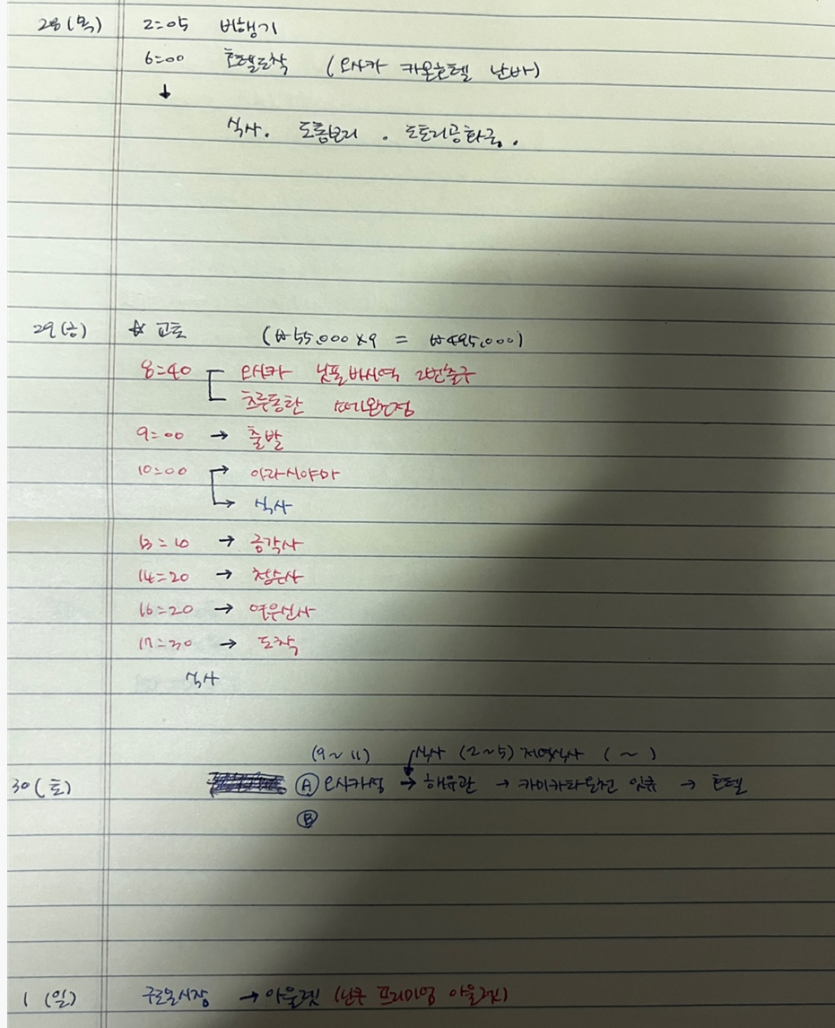 28(목) 2:05 비행기
6:00 호텔도착 (오사카 카온호텔 난바)
↓
식사. 도톰보리. 도토리공화국.
29(금) ☆ 교토 (₩55,000×9 = ₩495,000)
8:40 오사카 닛폰바시역 2번출구
츠루동탄 소에몬정
9:00 → 출발
10:00 → 아라시야마
→ 식사
13:10 → 금각사
14:20 → 청수사
16:20 → 여우신사
17:30 → 도착
식사
(9~11) 식사 (2~5) 저녁식사 (~)
30(토) Ⓐ 오사카성 → 해유관 → → 호텔
Ⓑ
1(일) 구로몬시장 → 아울렛 (난쿠 프리미엄 아울렛)